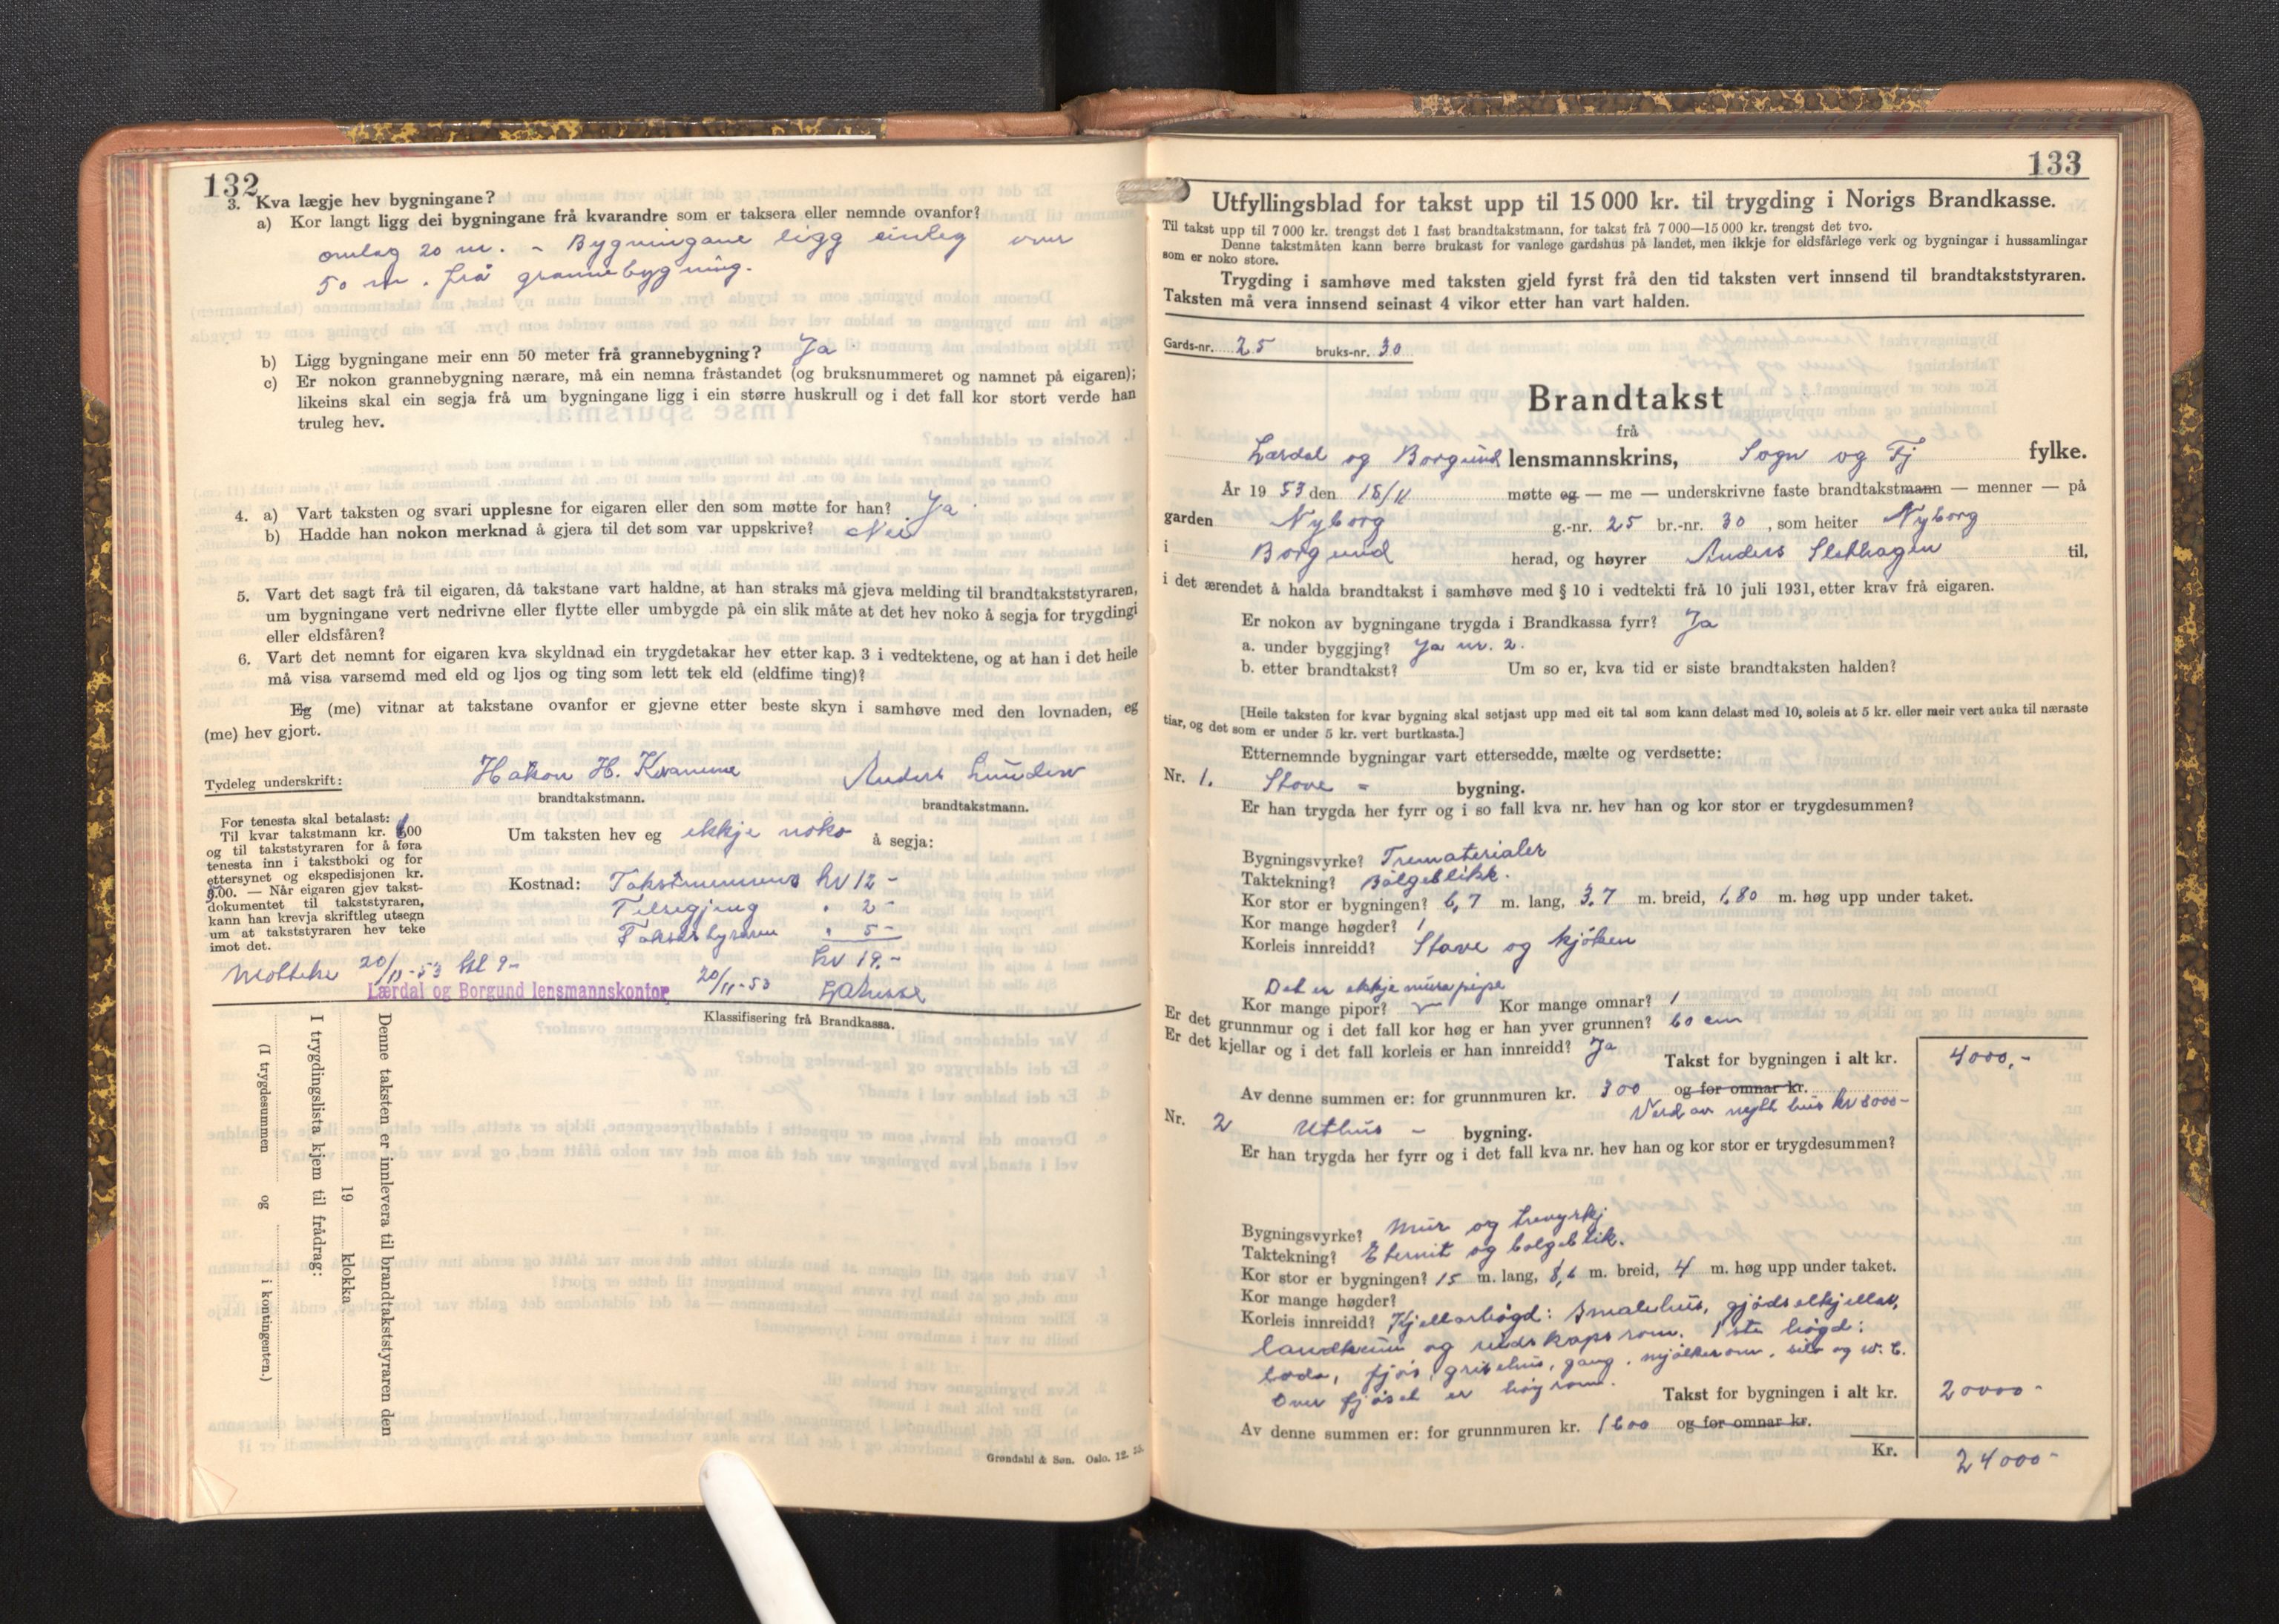 132
3. Kva lægje hev bygningane?
a) Kor langt ligg dei bygningane frå kvarandre som er taksera eller nemnde ovanfor?
omlag 20 m. - Bygningane ligg einleg over
50 m. frå grannebygning.
b) Ligg bygningane meir enn 50 meter frå grannebygning? Ja
c) Er nokon grannebygning nærare, må ein nemna fråstandet (og bruksnummeret og namnet på eigaren);
likeins skal ein segja frå um bygningane ligg i ein større huskrull og i det fall kor stort verde han
truleg hev.
4. a) Vart taksten og svari upplesne for eigaren eller den som møtte for han? Ja
b) Hadde han nokon merknad å gjera til det som var uppskrive? Nei
5. Vart det sagt frå til eigaren, då takstane vart haldne, at han straks må gjeva melding til brandtakststyraren,
um bygningane vert nedrivne eller flytte eller umbygde på ein slik måte at det hev noko å segja for trygdingi
eller eldsfåren?
6. Vart det nemnt for eigaren kva skyldnad ein trygdetakar hev etter kap. 3 i vedtektene, og at han i det heile
må visa varsemd med eld og ljos og ting som lett tek eld (eldfime ting)?
Eg (me) vitnar at takstane ovanfor er gjevne etter beste skyn i samhøve med den lovnaden, eg
(me) hev gjort.
Tydeleg underskrift: Håkon H. Kvamme Anders
brandtakstmann. brandtakstmann.
For tenesta skal betalast:
Til kvar takstmann kr. 6,00
og til takststyraren for å føra
tenesta inn i takstboki og for
ettersynet og ekspedisjonen kr.
5,00. — Når eigaren gjev takst-
dokumentet til takststyraren,
kann han krevja skriftleg utsegn
um at takststyraren hev teke
imot det.
Um taksten hev eg ekkje noko å segja:
Kostnad: Takstmennene kr 12 -
Tilsegjing " 2 -
Takststyraren " 5 -
kr 19.-
Mottke 20/11-53 kl 9-
Lærdal og Borgund lensmannskontor 20/11-53
Klassifisering frå Brandkassa.
Denne taksten er innlevera til brandtakststyraren den
19 klokka
I trygdingslista kjem til frådrag:
(I trygdesummen og i kontingenten.)
Grøndahl & Søn. Oslo. 12.
133
Utfyllingsblad for takst upp til 15 000 kr. til trygding i Norigs Brandkasse.
Til takst upp til 7 000 kr. trengst det 1 fast brandtakstmann, for takst frå 7 000—15 000 kr. trengst det tvo.
Denne takstmåten kann berre brukast for vanlege gardshus på landet, men ikkje for eldsfårlege verk og bygningar i hussamlingar
som er noko store.
Trygding i samhøve med taksten gjeld fyrst frå den tid taksten vert innsend til brandtakststyraren.
Taksten må vera innsend seinast 4 vikor etter han vart halden.
Gards-nr. 25 bruks-nr. 30
Brandtakst
frå
Lærdal og Borgund lensmannskrins, Sogn og Fj fylke.
År 19 53 den 18/11 møtte eg — me — underskrivne faste brandtakstmann — menner — på
garden Nyborg g.-nr. 25 br.-nr. 30, som heiter Nyborg
i Borgund herad, og høyrer Anders Slethagen til,
i det ærendet å halda brandtakst i samhøve med § 10 i vedtekti frå 10 juli 1931, etter krav frå eigaren.
Er nokon av bygningane trygda i Brandkassa fyrr? Ja
a. under byggjing? Ja nr. 2.
b. etter brandtakst? Um so er, kva tid er siste brandtaksten halden?
[Heile taksten for kvar bygning skal setjast upp med eit tal som kann delast med 10, soleis at 5 kr. eller meir vert auka til næraste
tiar, og det som er under 5 kr. vert burtkasta.]
Etternemnde bygningar vart ettersedde, mælte og verdsette:
Nr. 1. Stove - bygning.
Er han trygda her fyrr og i so fall kva nr. hev han og kor stor er trygdesummen?
Bygningsvyrke? Trematerialer
Taktekning? Bølgeblikk.
Kor stor er bygningen? 6,7 m. lang, 3,7 m. breid, 1,80 m. høg upp under taket.
Kor mange høgder? 1
Korleis innreidd? Stove og kjøken
Det er ekkje mura pipe
Kor mange pipor? Kor mange omnar? 1
Er det grunnmur og i det fall kor høg er han yver grunnen? 60 cm
Er det kjellar og i det fall korleis er han innreidd? Ja
Takst for bygningen i alt kr. 4000,-
Av denne summen er: for grunnmuren kr. 300 og for omnar kr.
Verd av nytt hus kr 8000-
Nr. 2 Uthus - bygning.
Er han trygda her fyrr og i det fall kva nr. hev han og kor stor er trygdesummen?
Bygningsvyrke? Mur og trevyrkj
Taktekning? Eternit og bølgeblik.
Kor stor er bygningen? 15 m. lang, 8,6 m. breid, 4 m. høg upp under taket.
Kor mange høgder?
Korleis innreidd? Kjellarhøgd: Smalehus, gjødselkjellar,
landkum og reidskapsrom. 1ste høgd:
løda, fjøs, grisehus, gang, mjølkerom, silo og W.C.
Over fjøset er høyrom.
Takst for bygningen i alt kr. 20000-
Av denne summen er: for grunnmuren kr. 1600 og for omnar kr.
Kr. 24000-